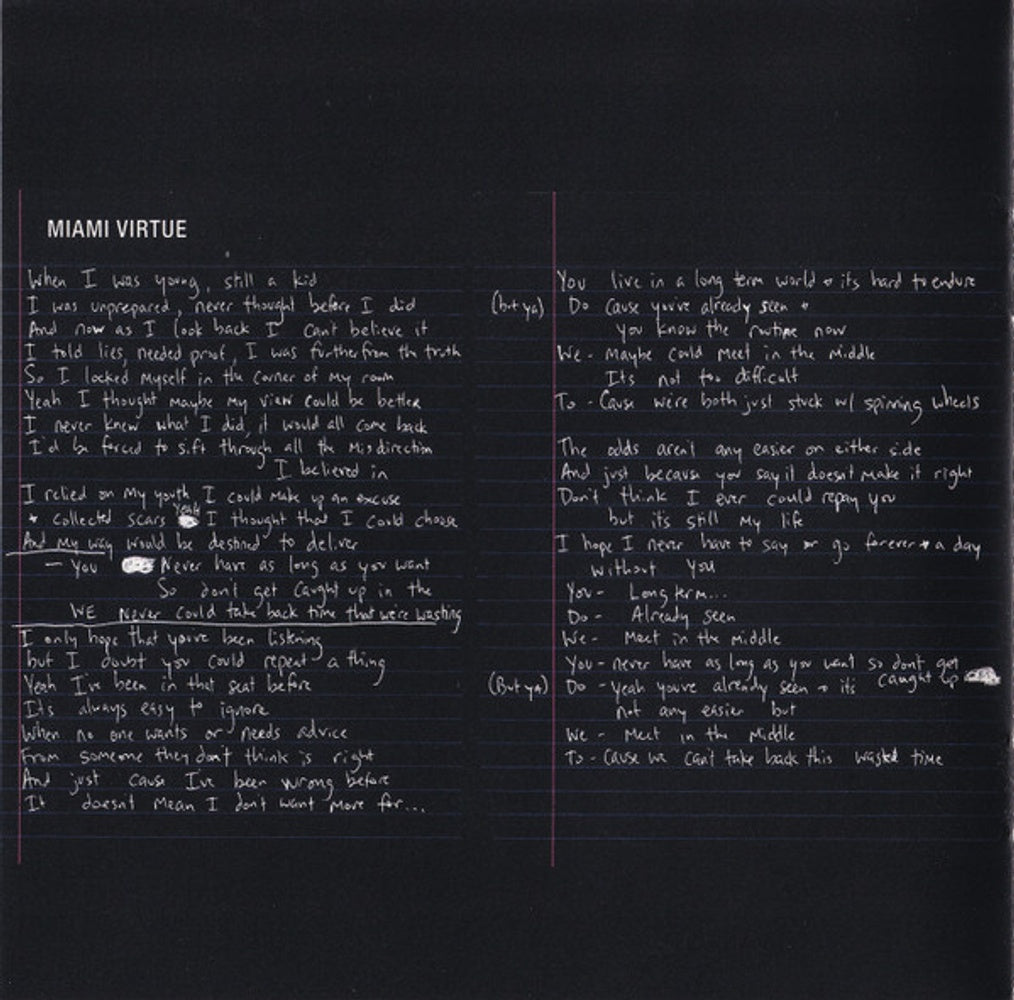 MIAMI VIRTUE
When I was young, still a kid
I was unprepared, never thought before I did
And now as I look back I cant believe it
I told lies, needed proof, I was further from the truth
So I locked myself in the corner of my room
Yeah I thought maybe my view could be better
I never knew what I did, it would all come back
I'd be forced to sift through all the Misdirection
I believed in
I relied on my youth, I could make up an excuse
+ collected scars Yeah I thought that I could choose
And my way would be destined to deliver
- you Never have as long as you want
So don't get caught up in the
WE Never could take back time that we're wasting
I only hope that youve been listening
but I doubt you could repeat a thing
Yeah I've been in that seat before
Its always easy to ignore
When no one wants or needs advice
From someone they don't think is right
And just cause I've been wrong before
It doesnt mean I don't want more for...
You live in a long term world + its hard to endure
(but ya) Do Cause you've already seen +
you know the routine now
We - Maybe could meet in the middle
Its not too difficult
To - Cause we're both just stuck w/ spinning wheels
The odds aren't any easier on either side
And just because you say it doesnt make it right
Don't think I ever could repay you
but it's still my life
I hope I never have to say or go forever + a day
without you
You - Long term...
Do - Already seen
We - Meet in the Middle
You - never have as long as you want so dont get
caught up
(But ya) Do - yeah youve already seen + its
not any easier but
We - Meet in the Middle
To - Cause we can't take back this wasted time